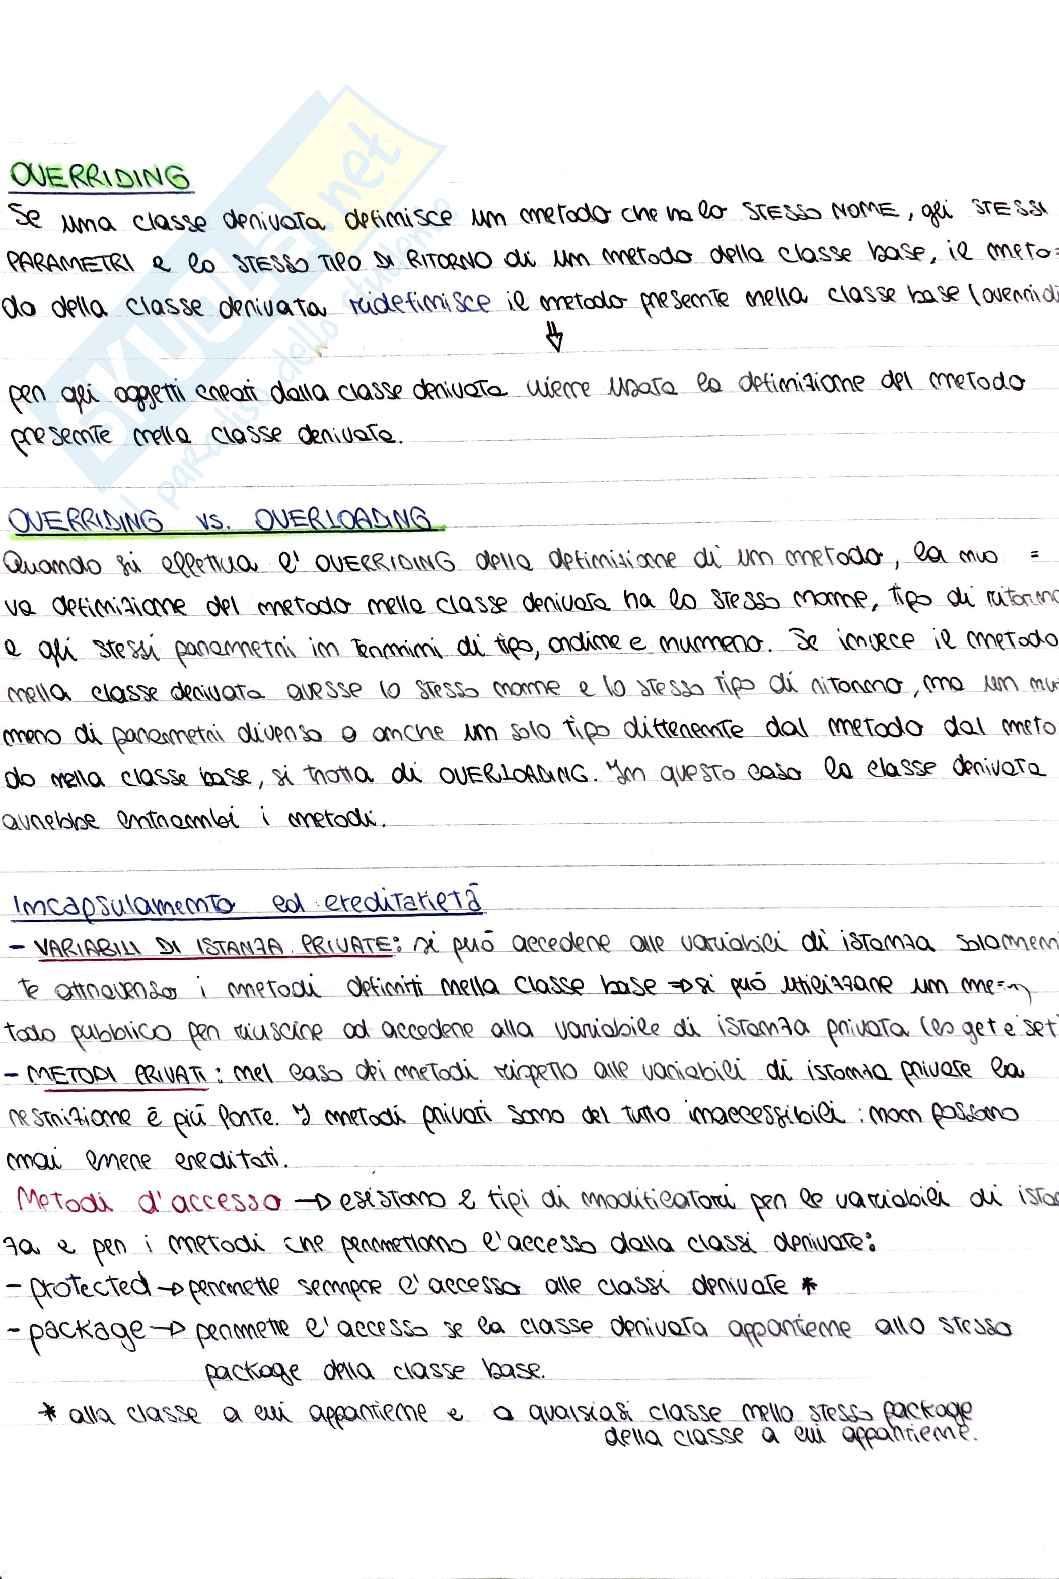 OVERRIDING
Se una classe derivata definisce un metodo che ha lo STESSO NOME, gli STESSI
PARAMETRI e lo STESSO TIPO DI RITORNO di un metodo della classe base, il meto=
do della classe derivata ridefinisce il metodo presente nella classe base (overridi
⇓
per gli oggetti creati dalla classe derivata viene usata la definizione del metodo
presente nella classe derivata.
OVERRIDING vs. OVERLOADING
Quando si effettua l'OVERRIDING della definizione di un metodo, la nuo =
va definizione del metodo nella classe derivata ha lo stesso nome, tipo di ritorno
e gli stessi parametri in termini di tipo, ordine e numero. Se invece il metodo
nella classe derivata avesse lo stesso nome e lo stesso tipo di ritorno, ma un nu
mero di parametri diverso o anche un solo tipo differente dal metodo dal meto
do nella classe base, si tratta di OVERLOADING. In questo caso la classe derivata
avrebbe entrambi i metodi.
Incapsulamento ed ereditarietà
- VARIABILI DI ISTANZA PRIVATE: si può accedere alle variabili di istanza solamen
te attraverso i metodi definiti nella classe base => si può utilizzare un me=
todo pubblico per riuscire ad accedere alla variabile di istanza privata (es get e set
- METODI PRIVATI: nel caso dei metodi rispetto alle variabili di istanza private la
restrizione è più forte. I metodi privati sono del tutto inaccessibili: non possono
mai essere ereditati.
Metodi d'accesso → esistono 2 tipi di modificatori per le variabili di istan
za e per i metodi che permettono l'accesso dalla classi derivate:
- protected → permette sempre l'accesso alle classi derivate *
- package → permette l'accesso se la classe derivata appartiene allo stesso
package della classe base.
* alla classe a cui appartiene e a qualsiasi classe nello stesso package
della classe a cui appartiene.
SKUOLA.net
il paradiso dello studente